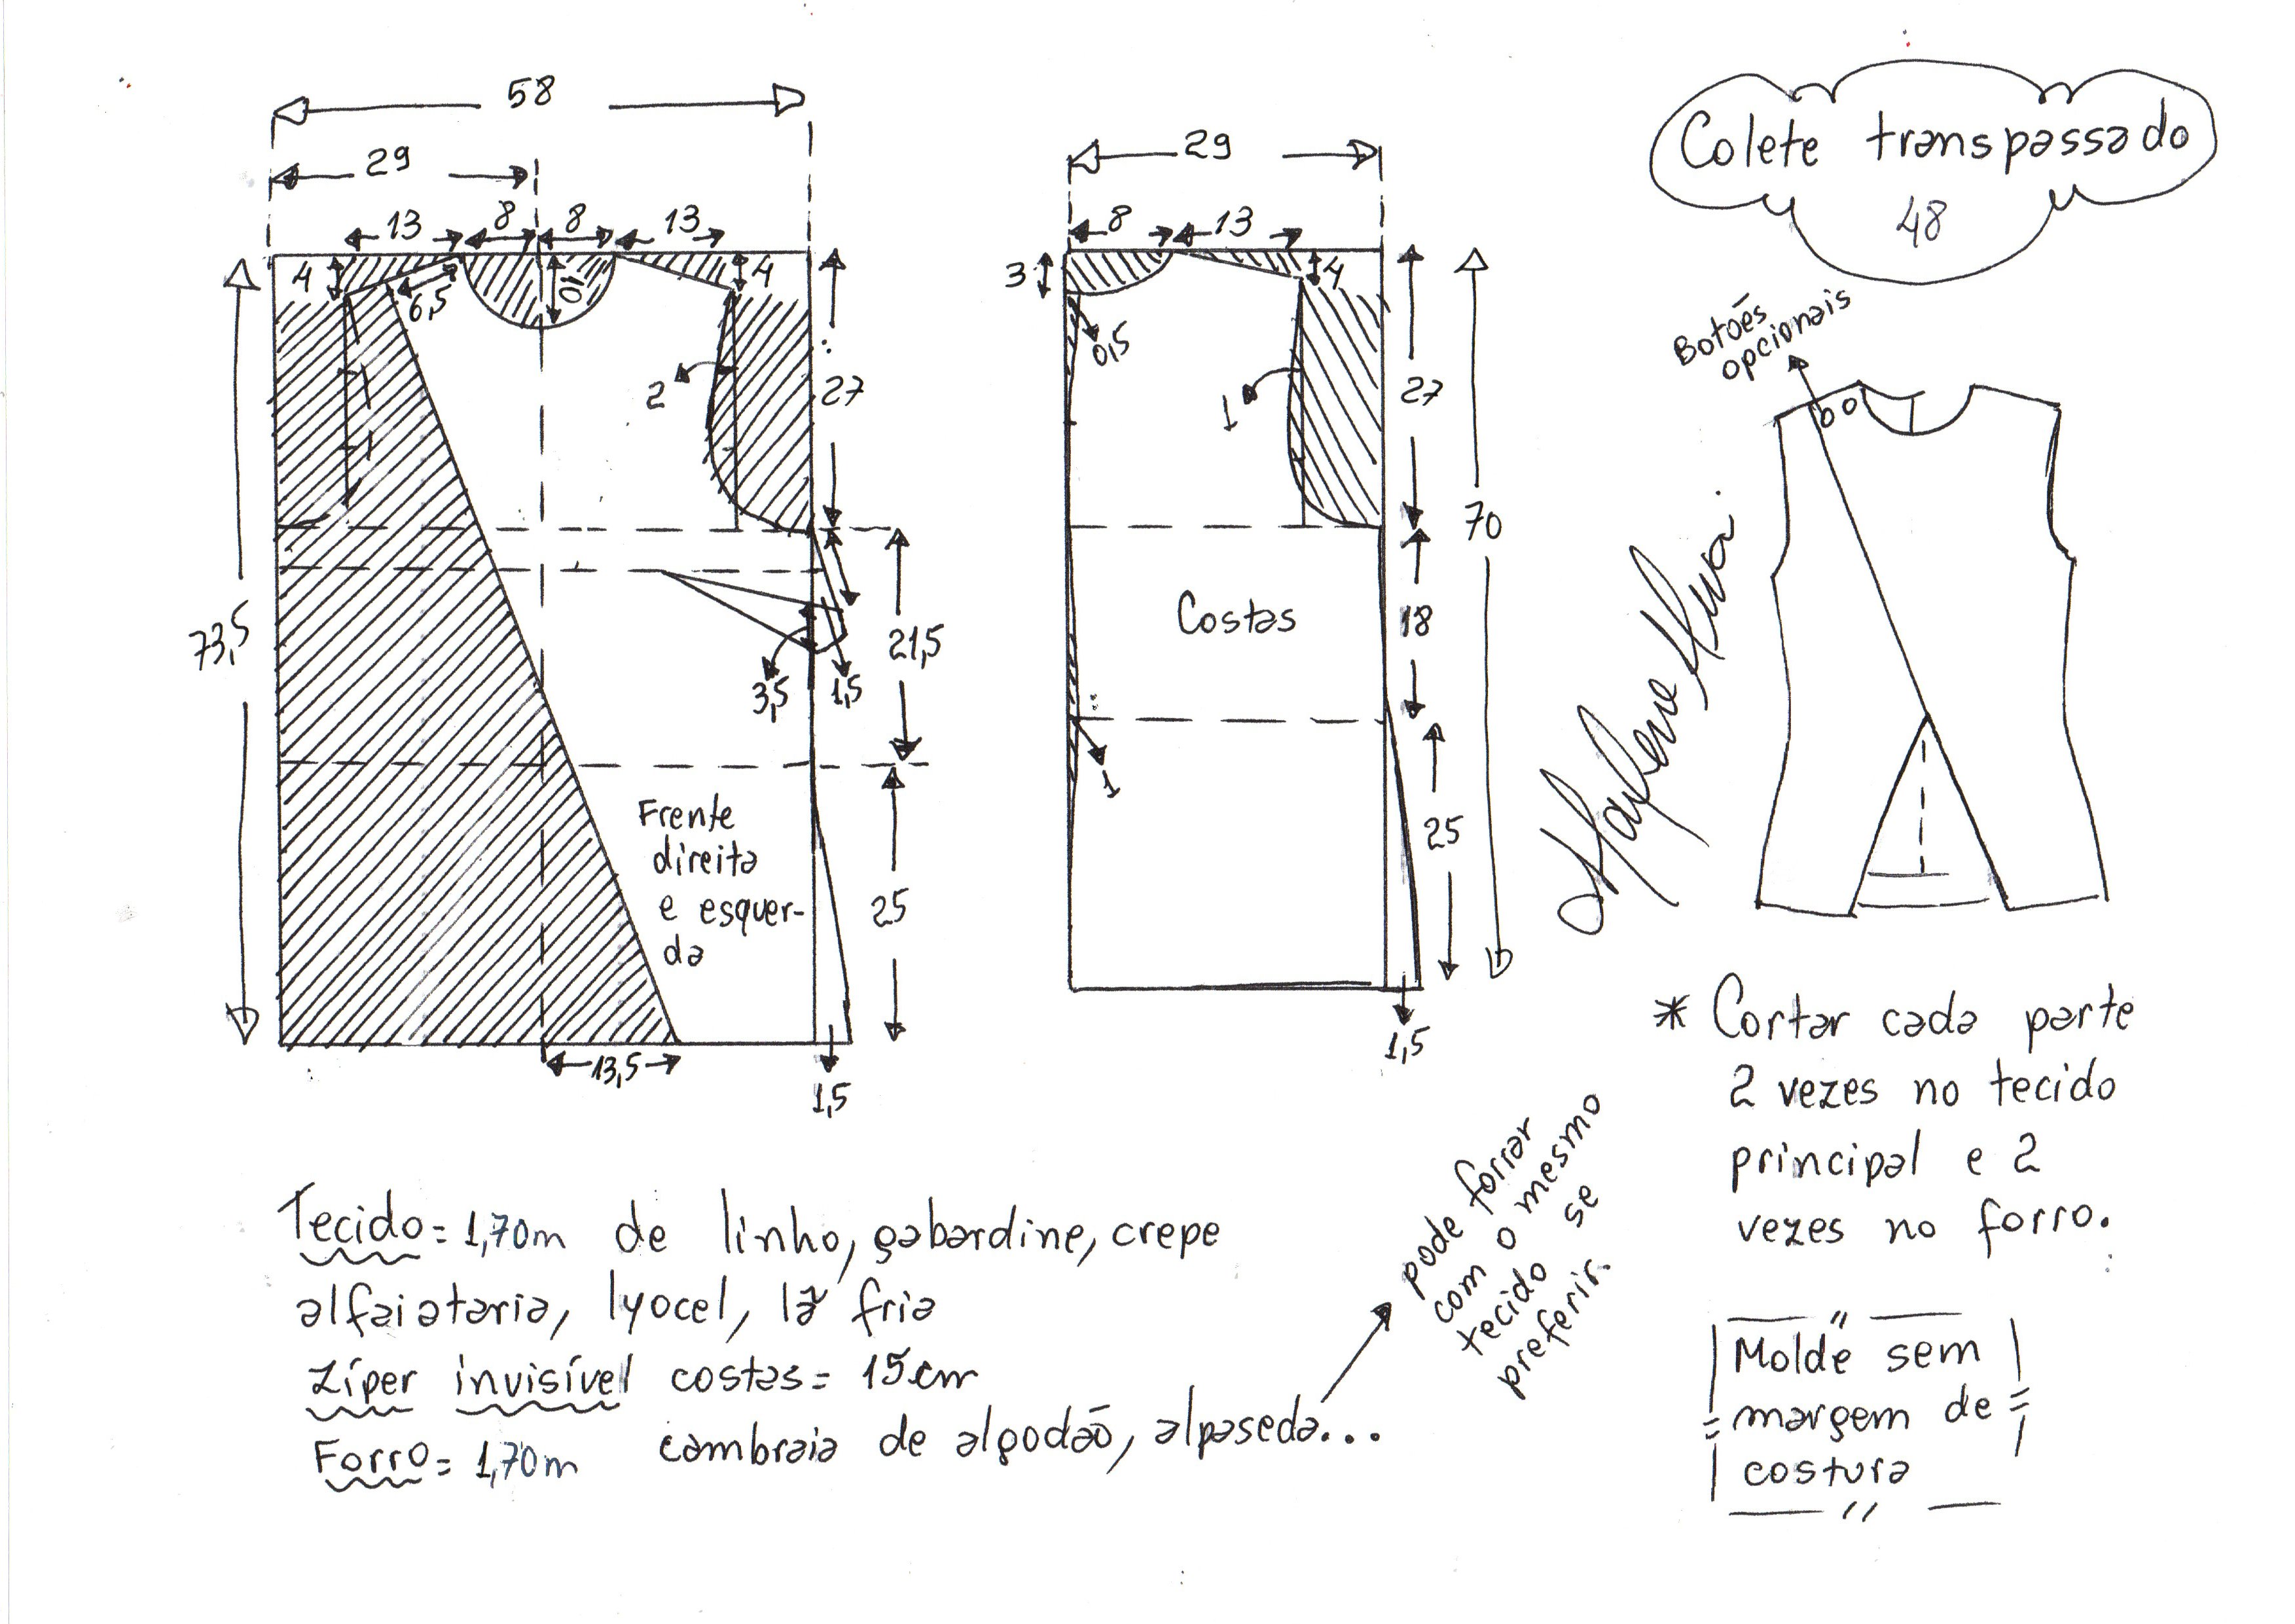 58
29
13 8 8 13
4
6,5
10
4
2
27
73,5
21,5
3,5
1,5
Frente
direita
e esquer-
da
25
13,5
1,5
29
8 13
3
4
0,5
1
27
70
Costas
18
1
25
1,5
Colete transpassado
48
Botões
opcionais
* Cortar cada parte
2 vezes no tecido
principal e 2
vezes no forro.
Molde sem
margem de
costura
Tecido = 1,70m de linho, gabardine, crepe
alfaiataria, lyocel, lã fria
Zíper invisível costas = 15cm
Forro = 1,70m cambraia de algodão, alpaseda...
pode forrar
com o mesmo
tecido se
preferir.